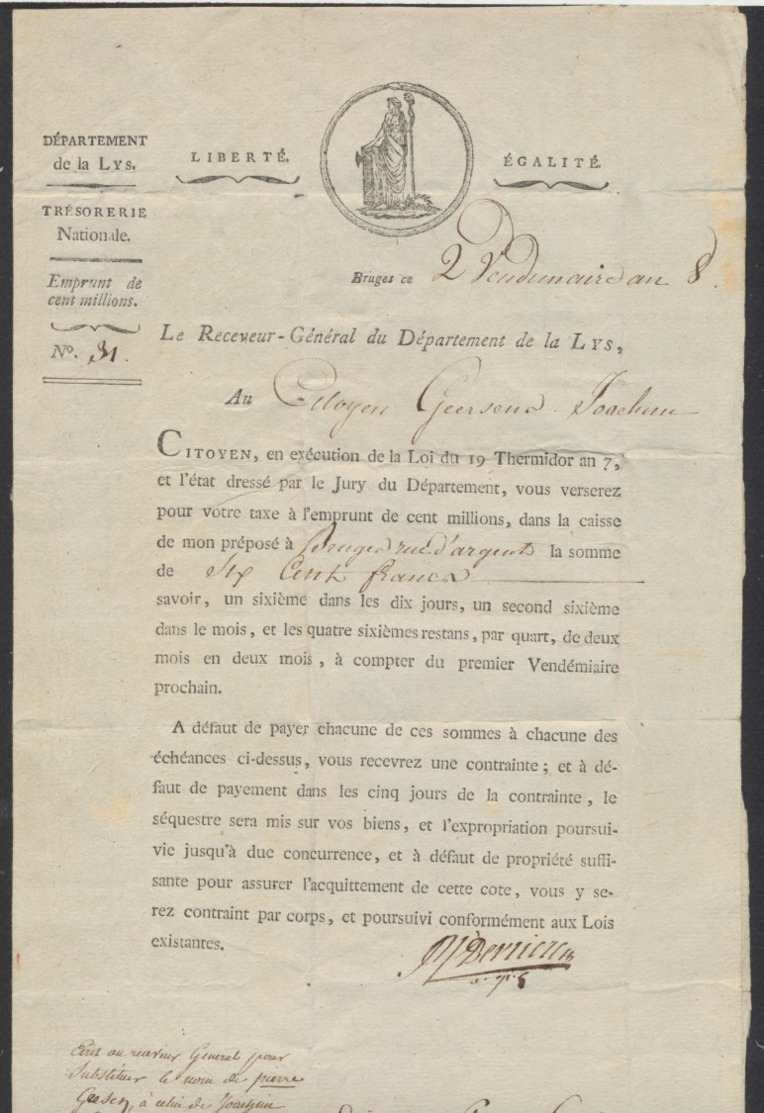 DÉPARTEMENT
de la LYS.
TRÉSORERIE
Nationale.
Emprunt de
cent millions.
Nº. 31.
LIBERTÉ.
ÉGALITÉ.
Bruges ce 2 Vendemiaire an 8.
Le Receveur-Général du Département de la LYS,
Au Citoyen Joachim
CITOYEN, en exécution de la Loi du 19 Thermidor an 7,
et l'état dressé par le Jury du Département, vous verserez
pour votre taxe à l'emprunt de cent millions, dans la caisse
de mon préposé à Bruges rue d'argent la somme
de Six Cent francs
savoir, un sixième dans les dix jours, un second sixième
dans le mois, et les quatre sixièmes restans, par quart, de deux
mois en deux mois, à compter du premier Vendémiaire
prochain.
A défaut de payer chacune de ces sommes à chacune des
échéances ci-dessus, vous recevrez une contrainte; et à dé-
faut de payement dans les cinq jours de la contrainte, le
séquestre sera mis sur vos biens, et l'expropriation poursui-
vie jusqu'à due concurrence, et à défaut de propriété suffi-
sante pour assurer l'acquittement de cette cote, vous y se-
rez contraint par corps, et poursuivi conformément aux Lois
existantes.
Ecrit au receveur General pour
Substituer le nom de pierre
à celui de Joachim